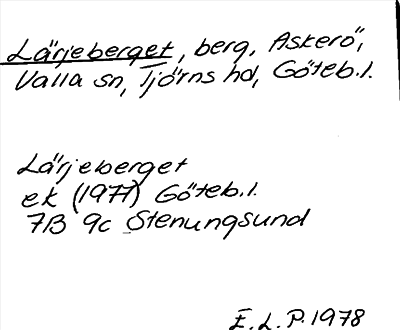 Lärjeberget, berg, Askerö,
Valla sn, Tjörns hd, Göteb.l.
Lärjeberget
ek (1977) Göteb.l.
7B 9c Stenungsund
E.L.P. 1978